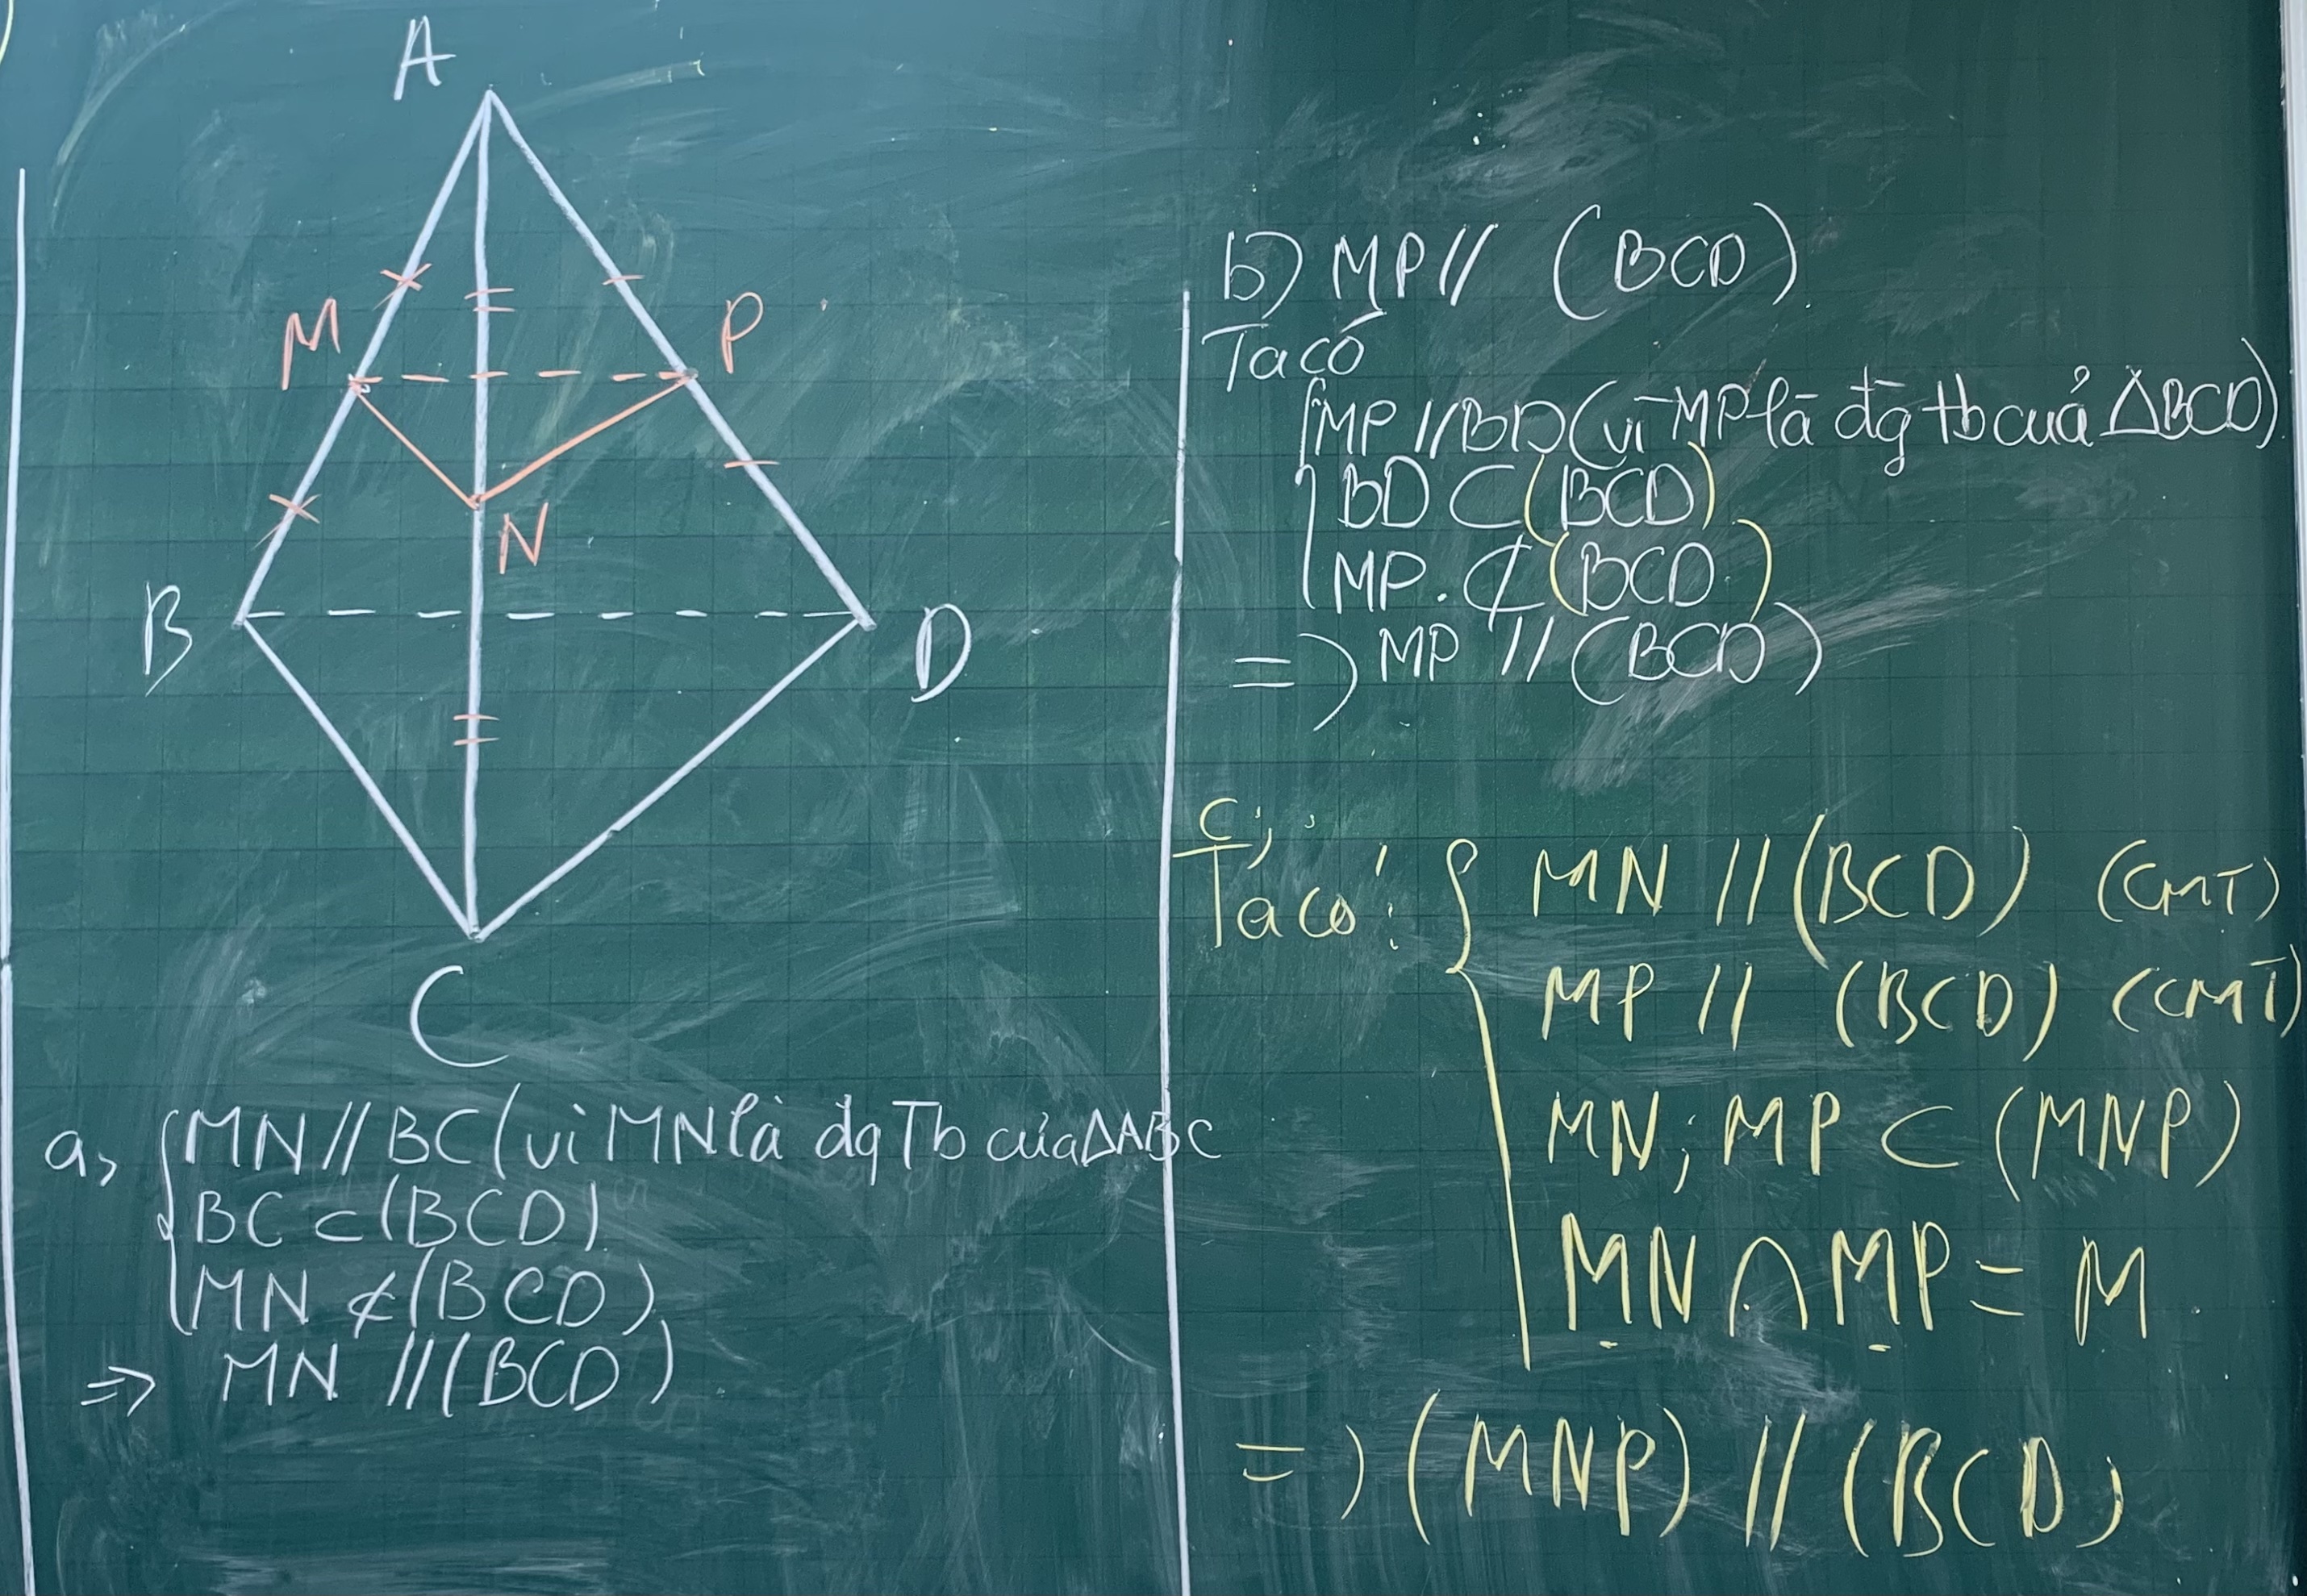 A
M
P
N
B
D
C
a, MN // BC (vì MN là dg Tb của ΔABC
BC ⊂ (BCD)
MN ⊄ (BCD)
=> MN // (BCD)
b) MP // (BCD)
Ta có
MP // BD (vì MP là đg tb cuả ΔBCD)
BD ⊂ (BCD)
MP . ⊄ (BCD)
=> MP // (BCD)
c,
Ta có: MN // (BCD) (CMT)
MP // (BCD) (CMT)
MN; MP ⊂ (MNP)
MN ∩ MP = M
=> (MNP) // (BCD)